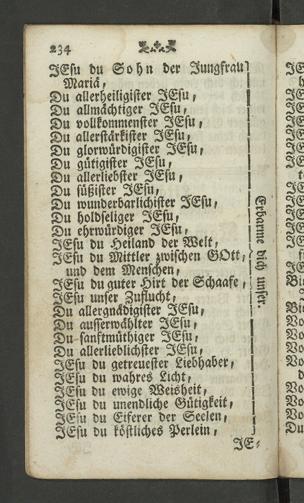 234
JEsu du Sohn der Jungfrau
Mariä,
Du allerheiligister JEsu,
Du allmächtiger JEsu,
Du vollkommenster JEsu,
Du allerstärkister JEsu,
Du glorwürdigister JEsu,
Du gütigister JEsu,
Du allerliebster JEsu,
Du süßister JEsu,
Du wunderbarlichister JEsu,
Du holdseliger JEsu,
Du ehrwürdiger JEsu,
JEsu du Heiland der Welt,
JEsu du Mittler zwischen GOtt,
und dem Menschen,
JEsu du guter Hirt der Schaafe,
JEsu unser Zuflucht,
Du allergnädigister JEsu,
Du ausserwählter JEsu,
Du sanftmüthiger JEsu,
Du allerlieblichster JEsu,
JEsu du getreuester Liebhaber,
JEsu du wahres Licht,
JEsu du ewige Weisheit,
JEsu du unendliche Gütigkeit,
JEsu du Eiferer der Seelen,
JEsu du köstliches Perlein,
Erbarme dich unser.
JE-